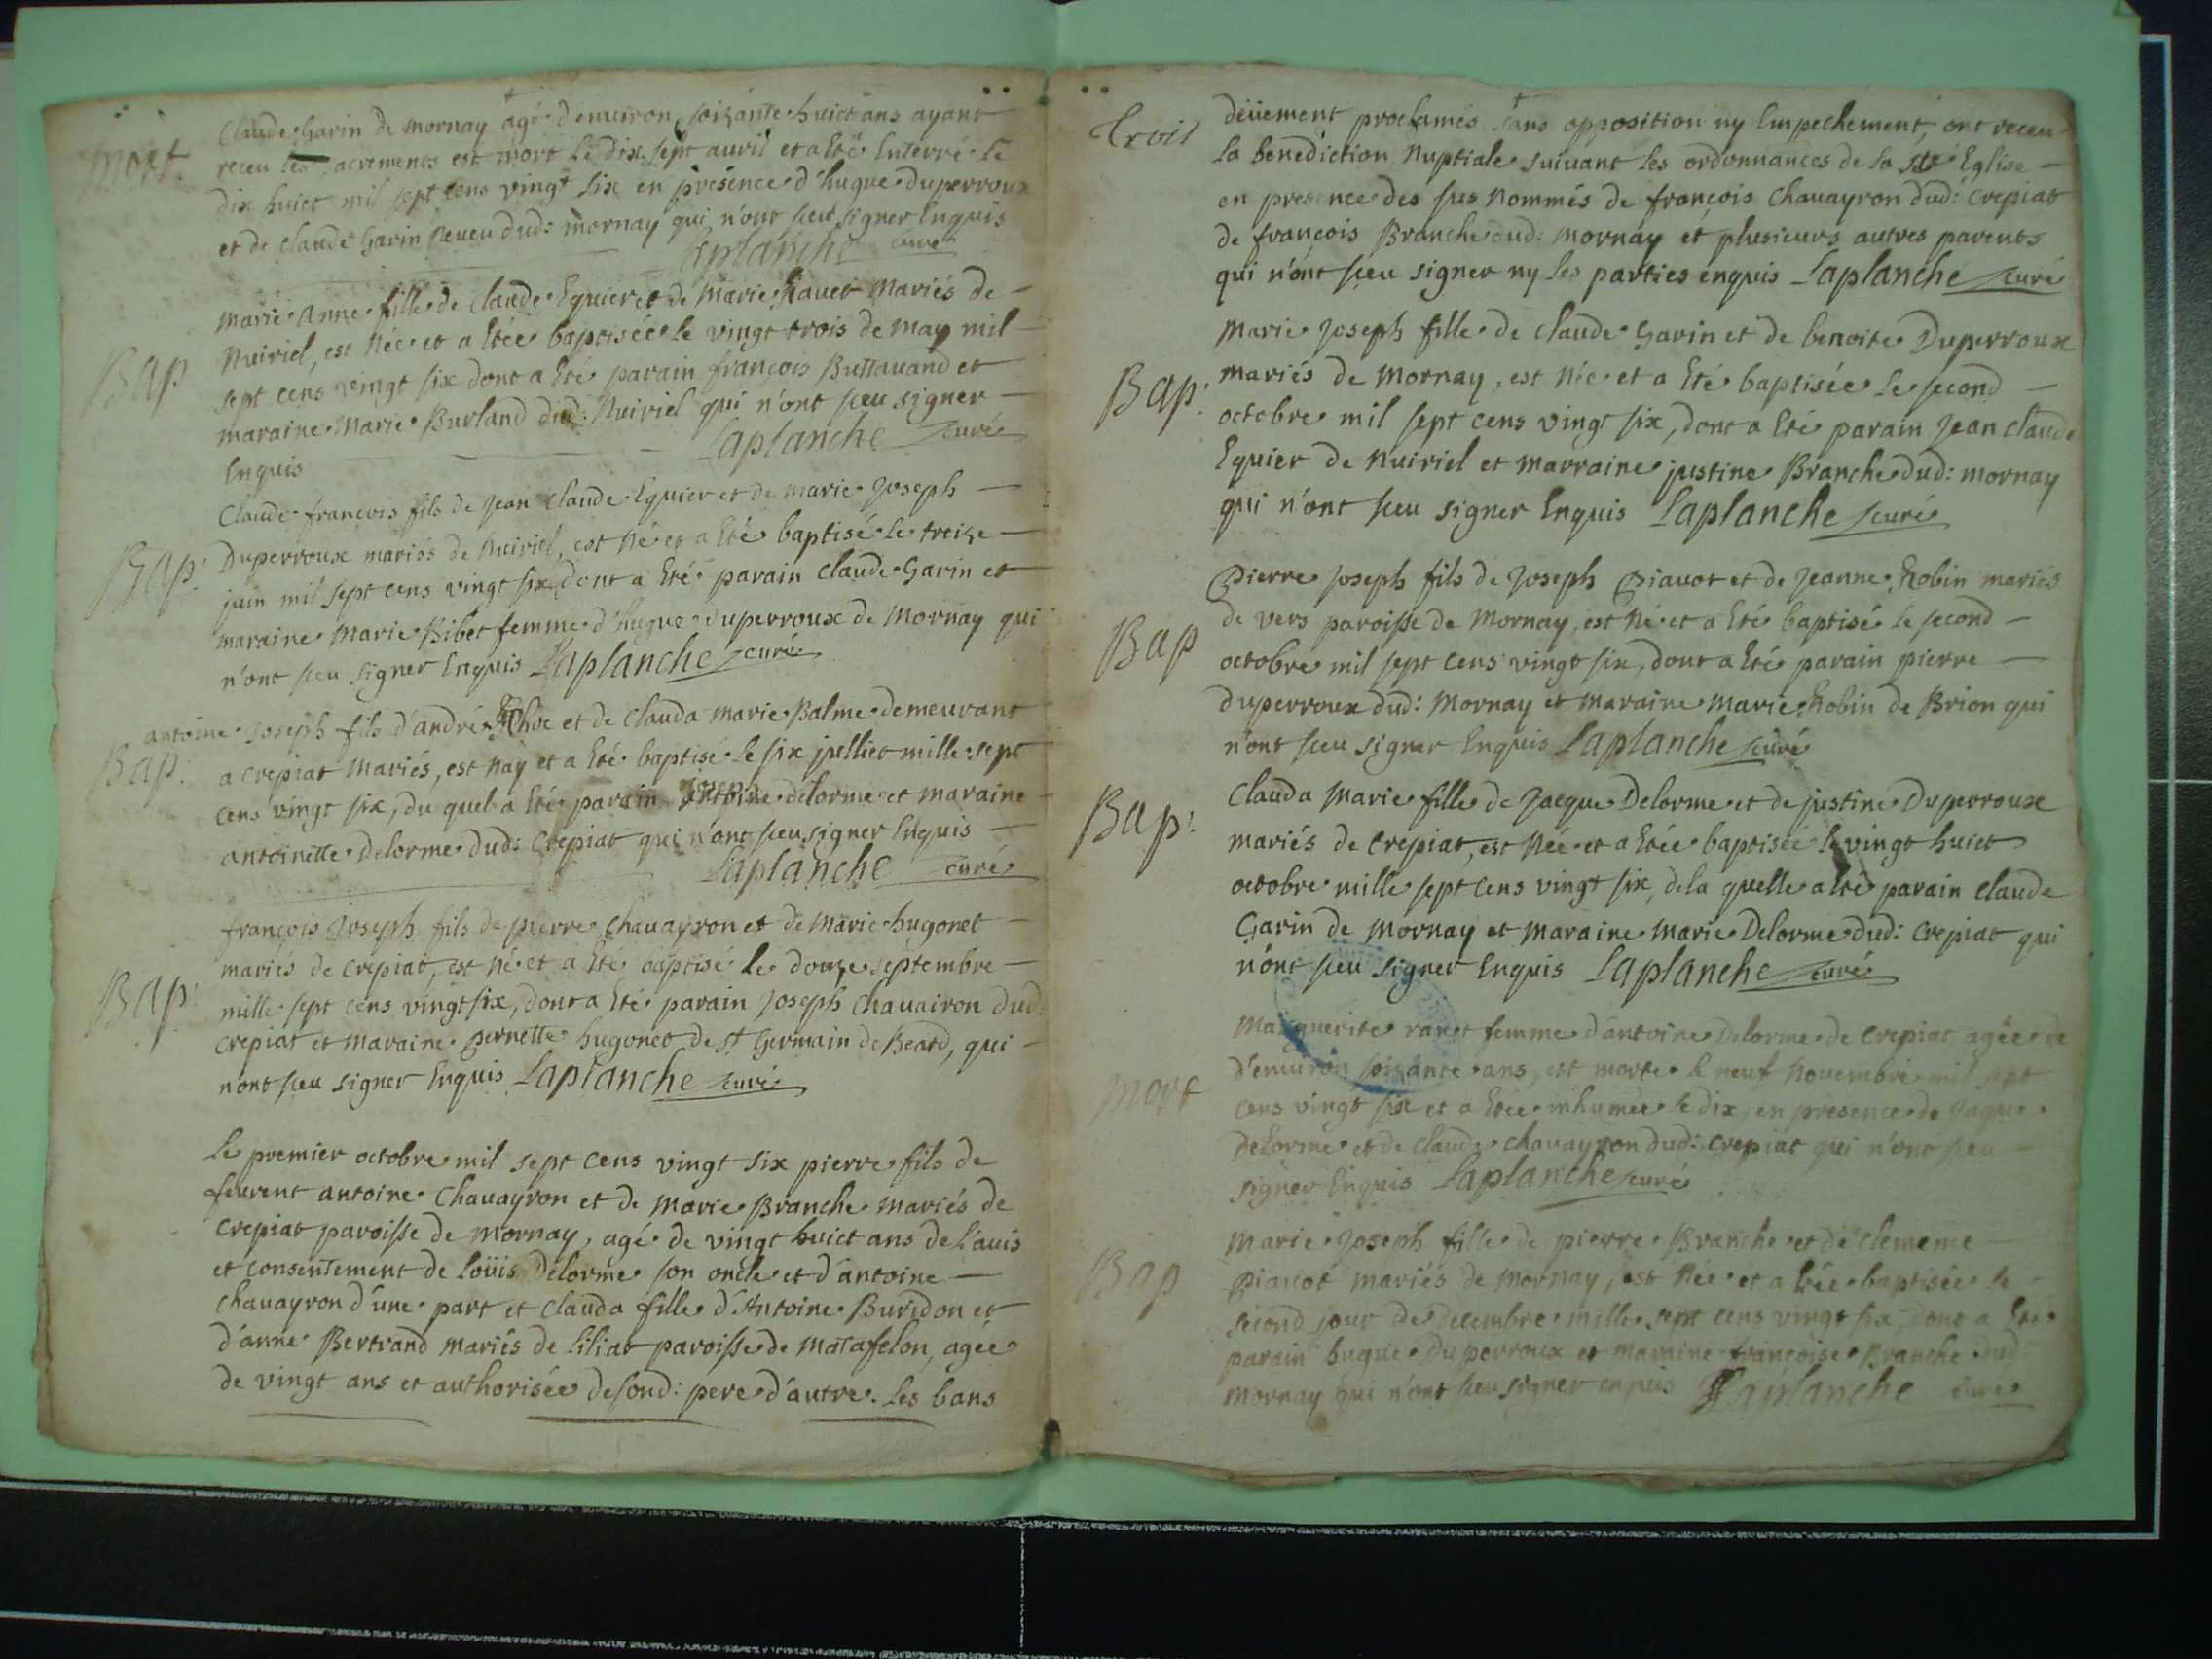 mort.
Claude Garin de mornay agé d'enuiron soixante huict ans ayant
receu les sacrements est mort le dix sept auril et a Eté Enterré le
dix huict mil sept cens vingt six en présence d'hugue duperroux
et de claude Garin neueu dud: mornay qui n'ont sceu signer Enquis
Laplanche curé
Bap
Marie Anne fille de claude Equier et de marie Mariés de
Nuiriel, est Née et a Etée baptisée le vingt trois de may mil
sept cens vingt six dont a Eté parain françois Buttauand et
maraine Marie Burland dud: Nuiriel qui n'ont sceu signer
Enquis Laplanche curé
Bap:
Claude françois fils de Jean Claude Equier et de marie Joseph
Duperroux mariés de Nuiriel, est Né et a Eté baptisé le treize
juin mil sept cens vingt six dont a Eté parain claude Garin et
maraine Marie Bibet femme d'hugue duperroux de Mornay qui
n'ont sceu signer Enquis Laplanche curé
Bap:
antoine Joseph fils d'andré et de Clauda Marie Balme demeurant
a crepiat Mariés, est Nay et a Eté baptisé le six juillet mille sept
cens vingt six, du quel a Eté parain delorme et maraine
antoinette Delorme dud: Crepiat qui n'ont sceu signer Enquis
Laplanche curé
Bap:
françois Joseph fils de pierre chauayron et de Marie hugonet
mariés de crepiat, est Né et a Eté baptisé le douze septembre
mille sept cens vingt six, dont a Eté parain Joseph Chauairon dud:
crepiat et maraine pernette hugonet de st Germain de Beard, qui
n'ont sceu signer Enquis Laplanche curé
Le premier octobre mil sept cens vingt six pierre fils de
feurent antoine Chauayron et de Marie Branche Mariés de
crepiat paroisse de Mornay, agé de vingt huict ans de l'auis
et consentement de Loüis Delorme son oncle et d'antoine
chauayron d'une part et Clauda fille d'Antoine Buridon et
d'anne Bertrand mariés de Siliat paroisse de Matafelon, agée
de vingt ans et authorisée de sond: pere d'autre. les bans
deüement proclamés sans opposition ny Empechement, ont receu
la benediction Nuptiale suiuant les ordonnances de la ste Eglise
en presence des sus nommés de françois Chauayron dud: crepiat
de françois Branche dud: Mornay et plusieurs autres parents
qui n'ont sceu signer ny les parties enquis Laplanche curé
Bap:
Marie Joseph fille de claude Garin et de benoite Duperroux
mariés de Mornay, est Née et a Eté baptisée le second
octobre mil sept cens vingt six, dont a Eté parain Jean claude
Equier de Nuiriel et Marraine justine Branche dud: mornay
qui n'ont sceu signer Enquis Laplanche curé
Bap
Pierre Joseph fils de Joseph Piauot et de Jeanne Robin mariés
de vers paroisse de Mornay, est Né et a Eté baptisé le second
octobre mil sept cens vingt six, dont a Eté parain pierre
duperroux dud: Mornay et maraine Marie Robin de Brion qui
n'ont sceu signer Enquis Laplanche curé
Bap:
Clauda Marie fille de Jacque Delorme et de justine Duperroux
mariés de crepiat, est Née et a Etée baptisée le vingt huict
octobre mille sept cens vingt six, de la quelle a Eté parain claude
Garin de Mornay et Maraine Marie Delorme dud: crepiat qui
n'ont sceu signer Enquis Laplanche curé
mort
Marguerite femme d'antoine Delorme de crepiat agée de
d'enuiron soixante ans, est morte le neuf Nouembre mil sept
cens vingt six et a Etée inhumée le dix, en presence de Jaque
Delorme et de Claude chauayron dud: crepiat qui n'ont sceu
signer Enquis Laplanche curé
Bap
Marie Joseph fille de pierre Branche et de clemence
piauot mariés de mornay, est Née et a Etée baptisée le
second jour de decembre mille sept cens vingt six, dont a Eté
parain hugue Duperroux et maraine françoise Branche dud:
Mornay qui n'ont sceu signer enquis Laplanche curé